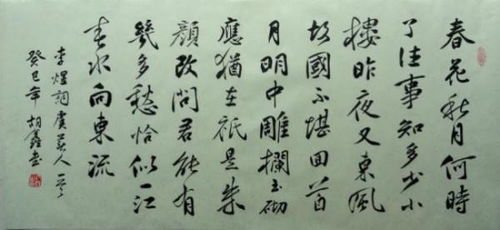 春花秋月何時
了往事知多少小
樓昨夜又東風
故國不堪回首
月明中雕欄玉砌
應猶在祇是朱
顏改問君能有
幾多愁恰似一江
春水向東流
李煜詞虞美人
癸巳年胡鑫書